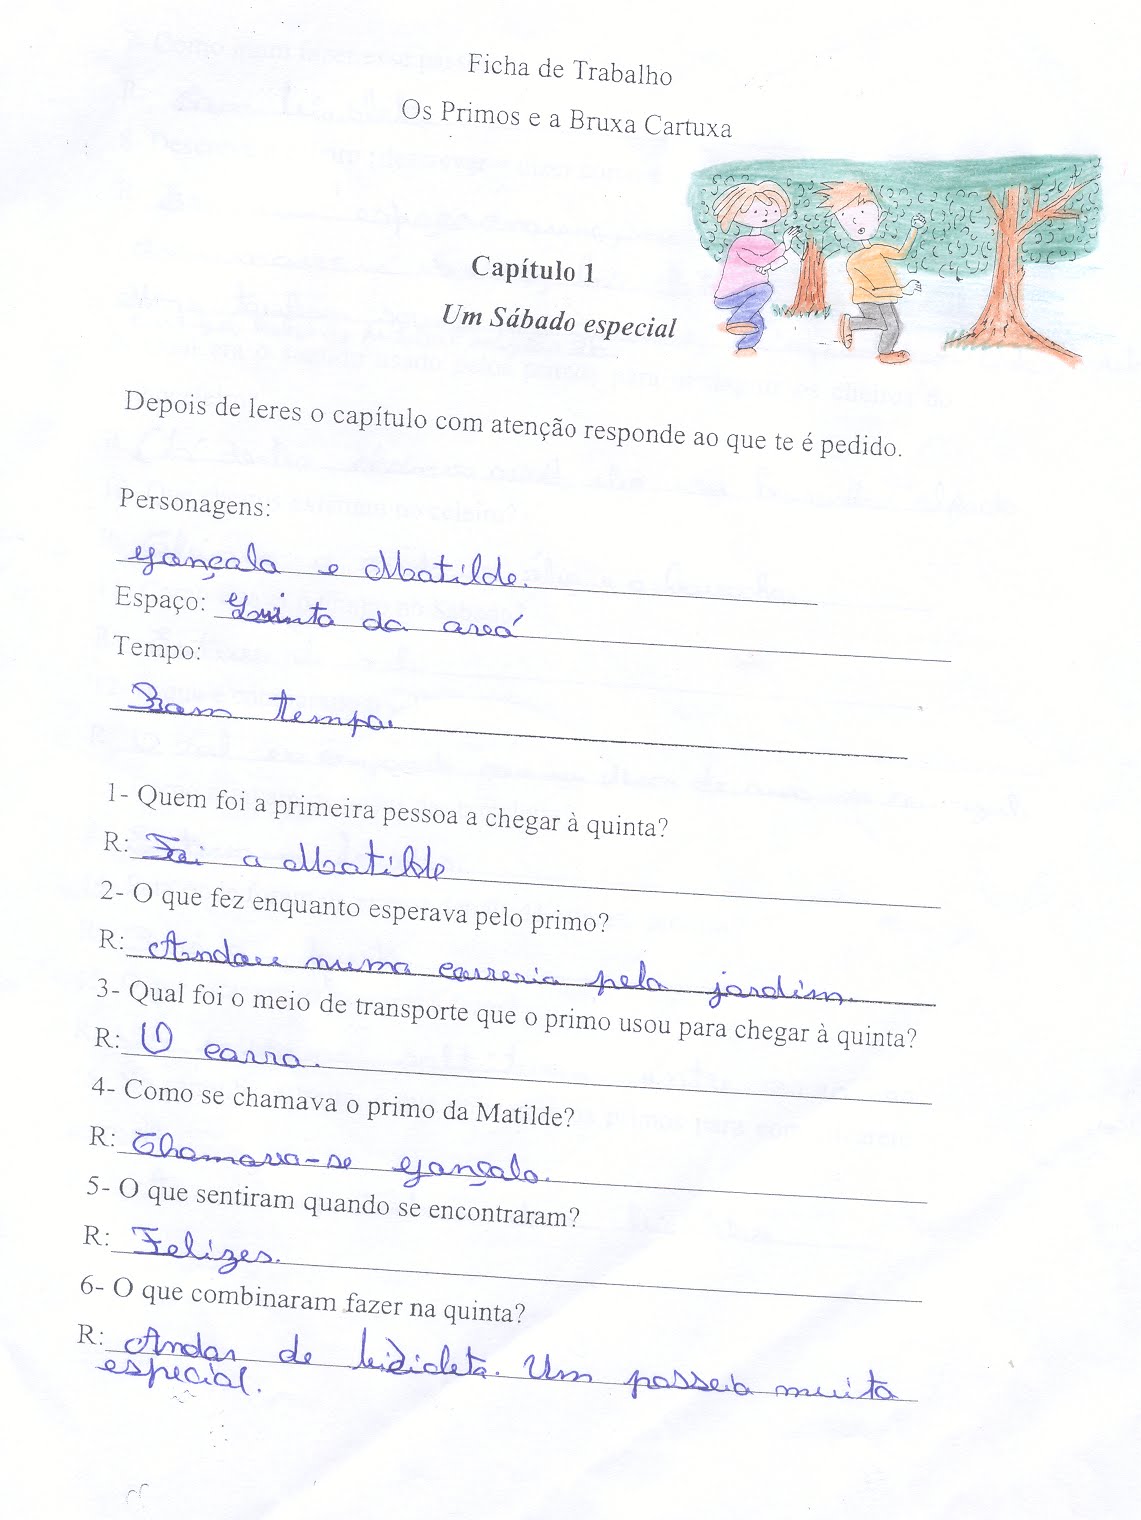 Ficha de Trabalho
Os Primos e a Bruxa Cartuxa
Capítulo 1
Um Sábado especial
Depois de leres o capítulo com atenção responde ao que te é pedido.
Personagens:
Gonçalo e Matilde.
Espaço: Quinta da areá
Tempo:
Bom tempo.
1- Quem foi a primeira pessoa a chegar à quinta?
R: Foi a Matilde
2- O que fez enquanto esperava pelo primo?
R: Andou numa correria pelo jardim.
3- Qual foi o meio de transporte que o primo usou para chegar à quinta?
R: O carro.
4- Como se chamava o primo da Matilde?
R: Chamava-se Gonçalo.
5- O que sentiram quando se encontraram?
R: Felizes.
6- O que combinaram fazer na quinta?
R: Andar de bicicleta. Um passeio muito
especial.